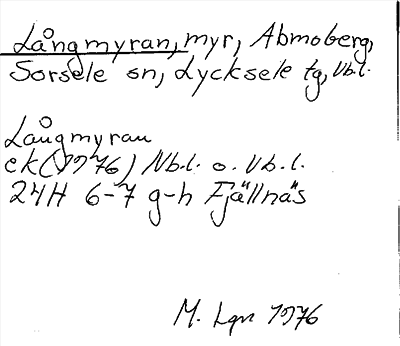 Långmyran, myr, Abmoberg,
Sorsele sn, Lycksele tg, Vb.l.
Långmyran
ek (1976) Nb.l. o. Vb.l.
24H 6-7 g-h Fjällnäs
M. Lgn 1976